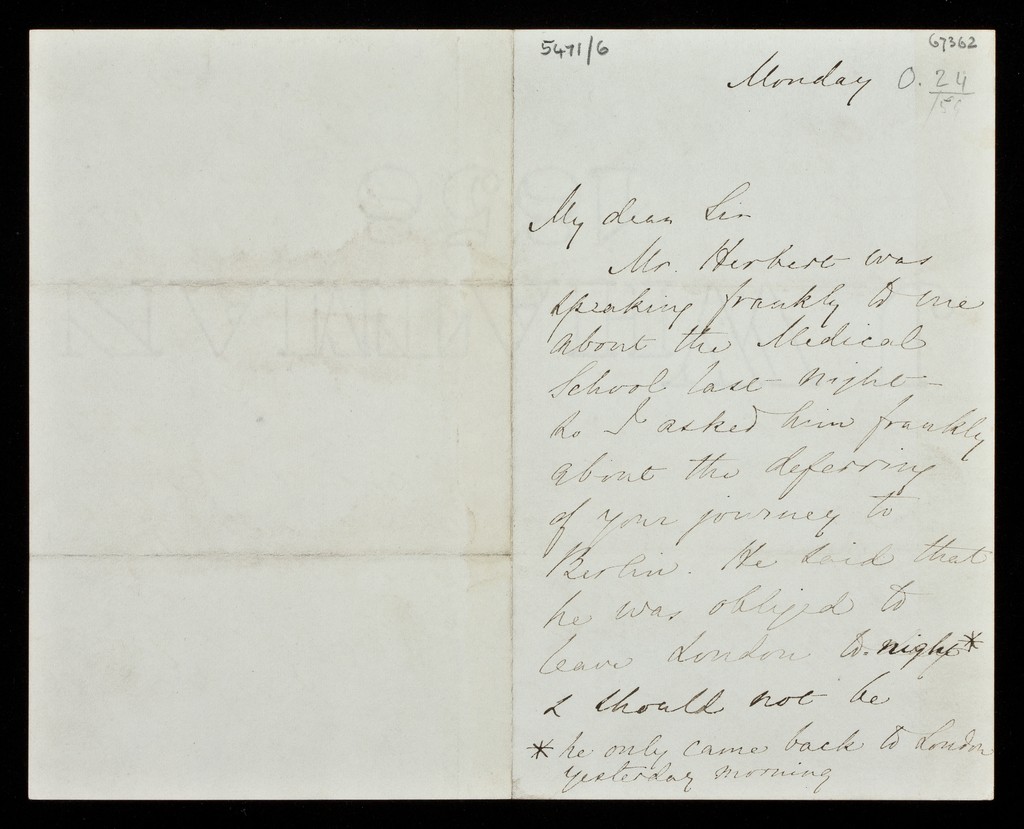 5471/6
67362
Monday O. 24
My dear Sir
Mr. Herbert was
speaking frankly to me
about the Medical
School last night -
so I asked him frankly
about the deferring
of your journey to
Berlin. He said that
he was obliged to
leave London to-night*
& should not be
* he only came back to London
yesterday morning